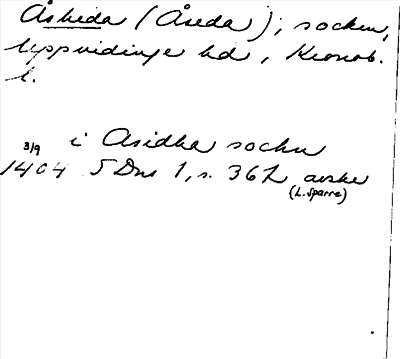 Åsheda (Åseda); socken,
Uppvidinge hd, Kronob.
l.
3/9 i Asidha sockn
1404 5 Dns 1, s. 362 avskr
(L. Sparre)